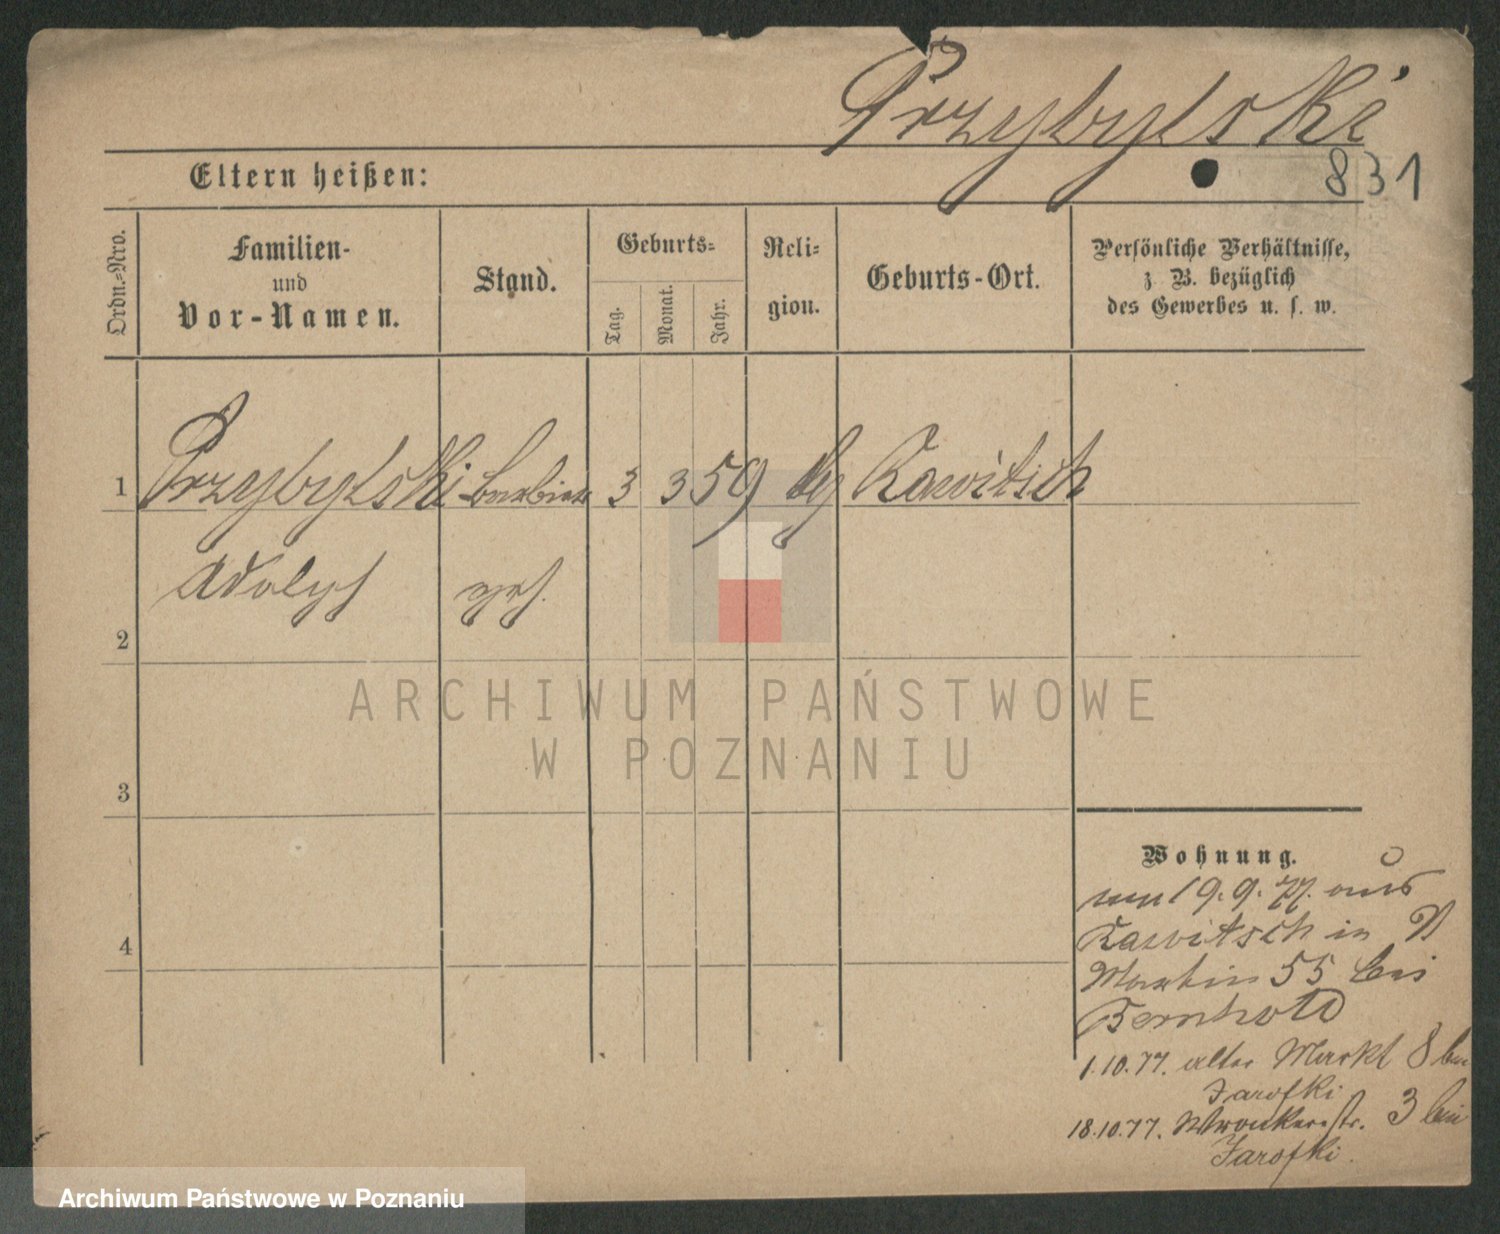 Przybylski
Eltern heißen:
831
Ordn.=Nro.
Familien-
und
Vor-Namen.
Stand.
Geburts=
Tag.
Monat.
Jahr.
Reli=
gion.
Geburts-Ort.
Persönliche Verhältnisse,
z. B. bezüglich
des Gewerbes u. s. w.
1 Przybylski 3 3 59 Rawitsch
Adolph
2
3
4
ARCHIWUM PAŃSTWOWE
W POZNANIU
Wohnung.
19.9.77. aus
Rawitsch in
Martin 55 bei
Bernhold
1.10.77. alter Markt 8 bei
Jarofki
18.10.77. Wronkerstr. 3 bei
Jarofki.
Archiwum Państwowe w Poznaniu